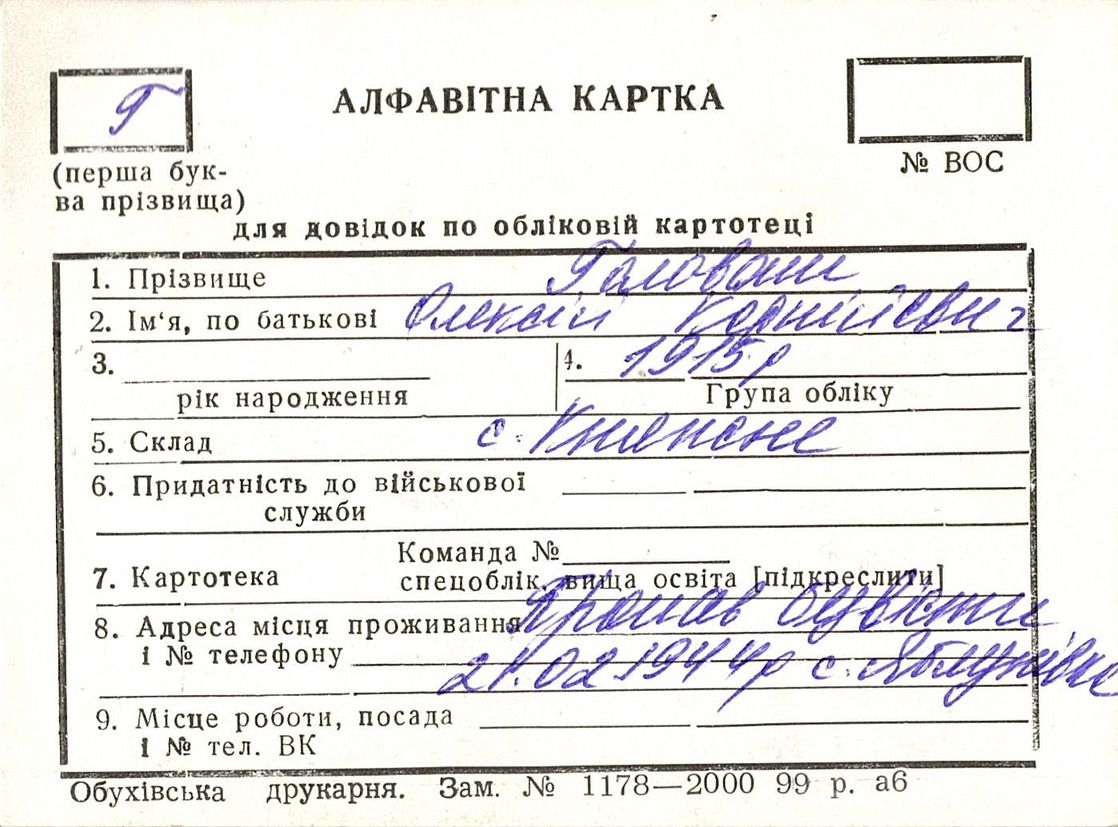 Г
АЛФАВІТНА КАРТКА
(перша бук-
ва прізвища)
№ ВОС
для довідок по обліковій картотеці
1. Прізвище Головаш
2. Ім'я, по батькові Олексій Корнійєвич
3.
рік народження
4. 1915р
Група обліку
5. Склад с. Княжне
6. Придатність до військової
служби
7. Картотека
Команда №
спецоблік, вища освіта [підкреслити]
8. Адреса місця проживання Пропав безвісти
і № телефону 21.02.1944р с. Яблунівка
9. Місце роботи, посада
і № тел. ВК
Обухівська друкарня. Зам. № 1178—2000 99 р. аб